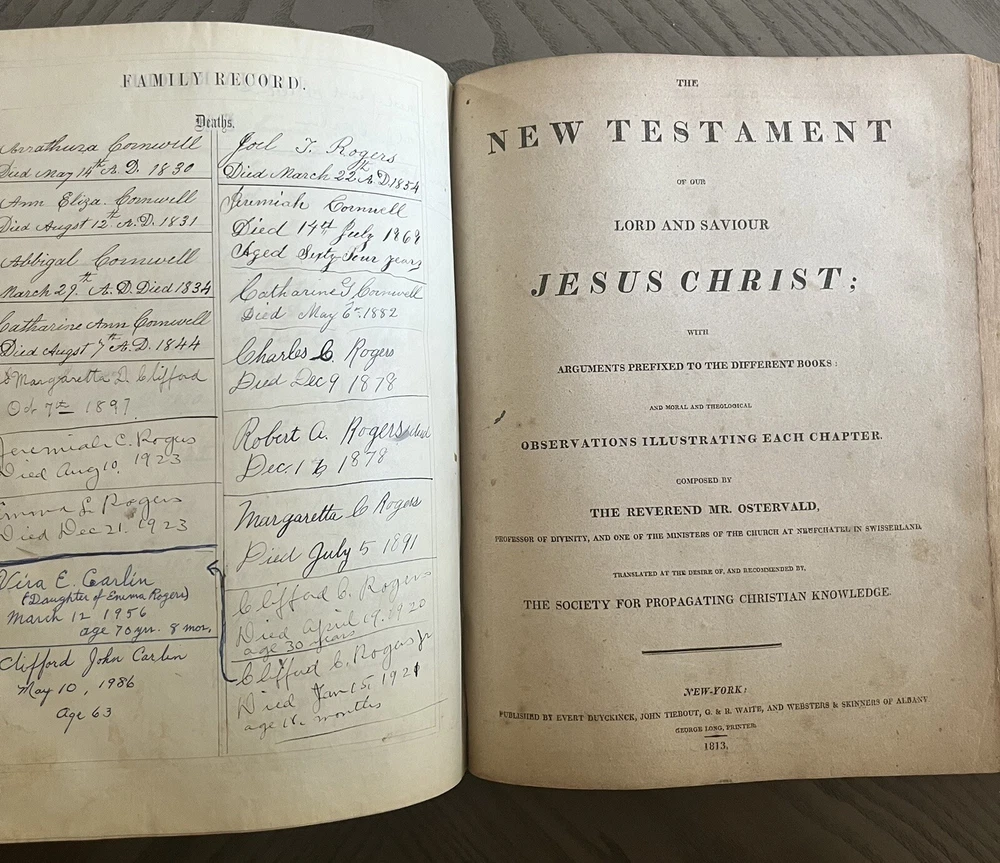 FAMILY RECORD.
Deaths.
Arrathusa Cornwell
Died May 14th A.D. 1830
Ann Eliza. Cornwell
Died Augst 12th. A.D. 1831
Abbigal Cornwell
March 29th A.D. Died 1834
Catharine Ann Cornwell
Died Augst 7th A.D. 1844
Margaretta D. Clifford
Oct 7th 1897
Jeremiah C. Rogers
Died Aug 10, 1923
Emma L. Rogers
Died Dec 21, 1923
Vira E. Carlin
(Daughter of Emma Rogers)
March 12 1956
age 70 yrs. 8 mos.
Clifford John Carlin
May 10, 1986
Age 63
Joel T. Rogers
Died March 22th A.D. 1854
Jeremiah Cornwell
Died 14th July 1869
Aged Sixty Four years
Catharine T Cornwell
Died May 6th. 1882
Charles C Rogers
Died Dec 9 1878
Robert A. Rogers died
Dec. 16 1878
Margaretta C Rogers
Died July 5 1891
Clifford C. Rogers
Died April 19, 1920
age 30 years
Clifford C. Rogers Jr
Died Jan 15, 1921
age months
THE
NEW TESTAMENT
OF OUR
LORD AND SAVIOUR
JESUS CHRIST;
WITH
ARGUMENTS PREFIXED TO THE DIFFERENT BOOKS:
AND MORAL AND THEOLOGICAL
OBSERVATIONS ILLUSTRATING EACH CHAPTER.
COMPOSED BY
THE REVEREND MR. OSTERVALD,
PROFESSOR OF DIVINITY, AND ONE OF THE MINISTERS OF THE CHURCH AT NEUFCHATEL IN SWISSERLAND.
TRANSLATED AT THE DESIRE OF, AND RECOMMENDED BY,
THE SOCIETY FOR PROPAGATING CHRISTIAN KNOWLEDGE.
NEW-YORK:
PUBLISHED BY EVERT DUYCKINCK, JOHN TIEBOUT, G. & R. WAITE, AND WEBSTERS & SKINNERS OF ALBANY
GEORGE LONG, PRINTER.
1813.